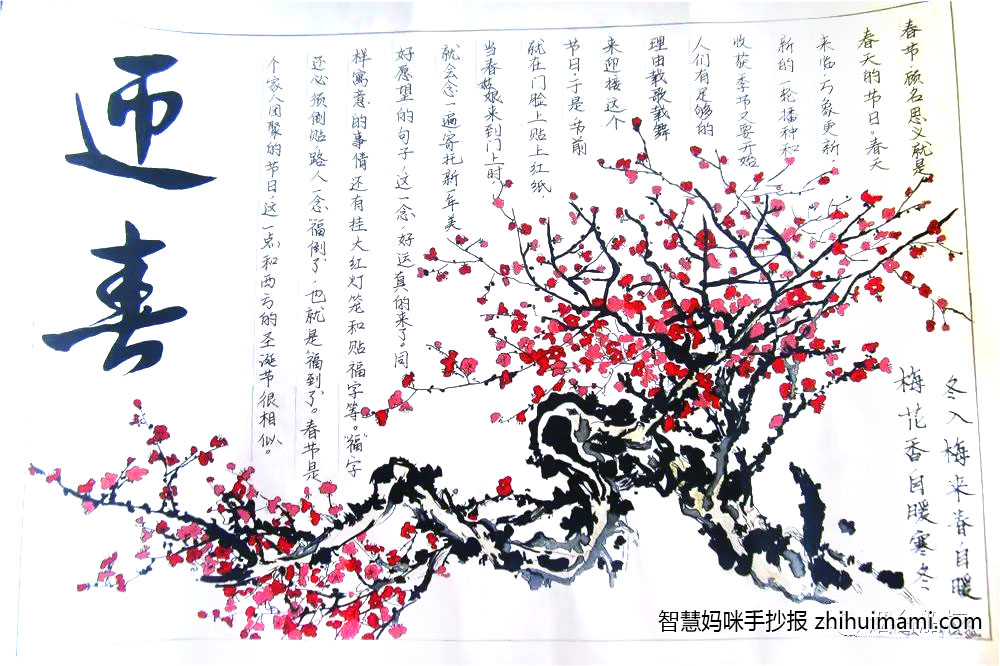 迎春
春节,顾名思义就是
春天的节日。春天
来临,万象更新,
新的一轮播种和
收获季节又要开始
人们有足够的
理由载歌载舞
来迎接这个
节日于是节前
就在门脸上贴上红纸,
当春姑娘来到门上时,
就会念一遍寄托新年美
好愿望的句子,这一念,好运真的来了。同
样寓意的事情还有挂大红灯笼和贴福字等。“福”字
还必须倒贴,路人一念“福倒了”也就是福到了。春节是
个家人团聚的节日,这一点和西方的圣诞节很相似。
冬入梅来春自暖
梅花香自暖寒冬
智慧妈咪手抄报 zhihuimami.com